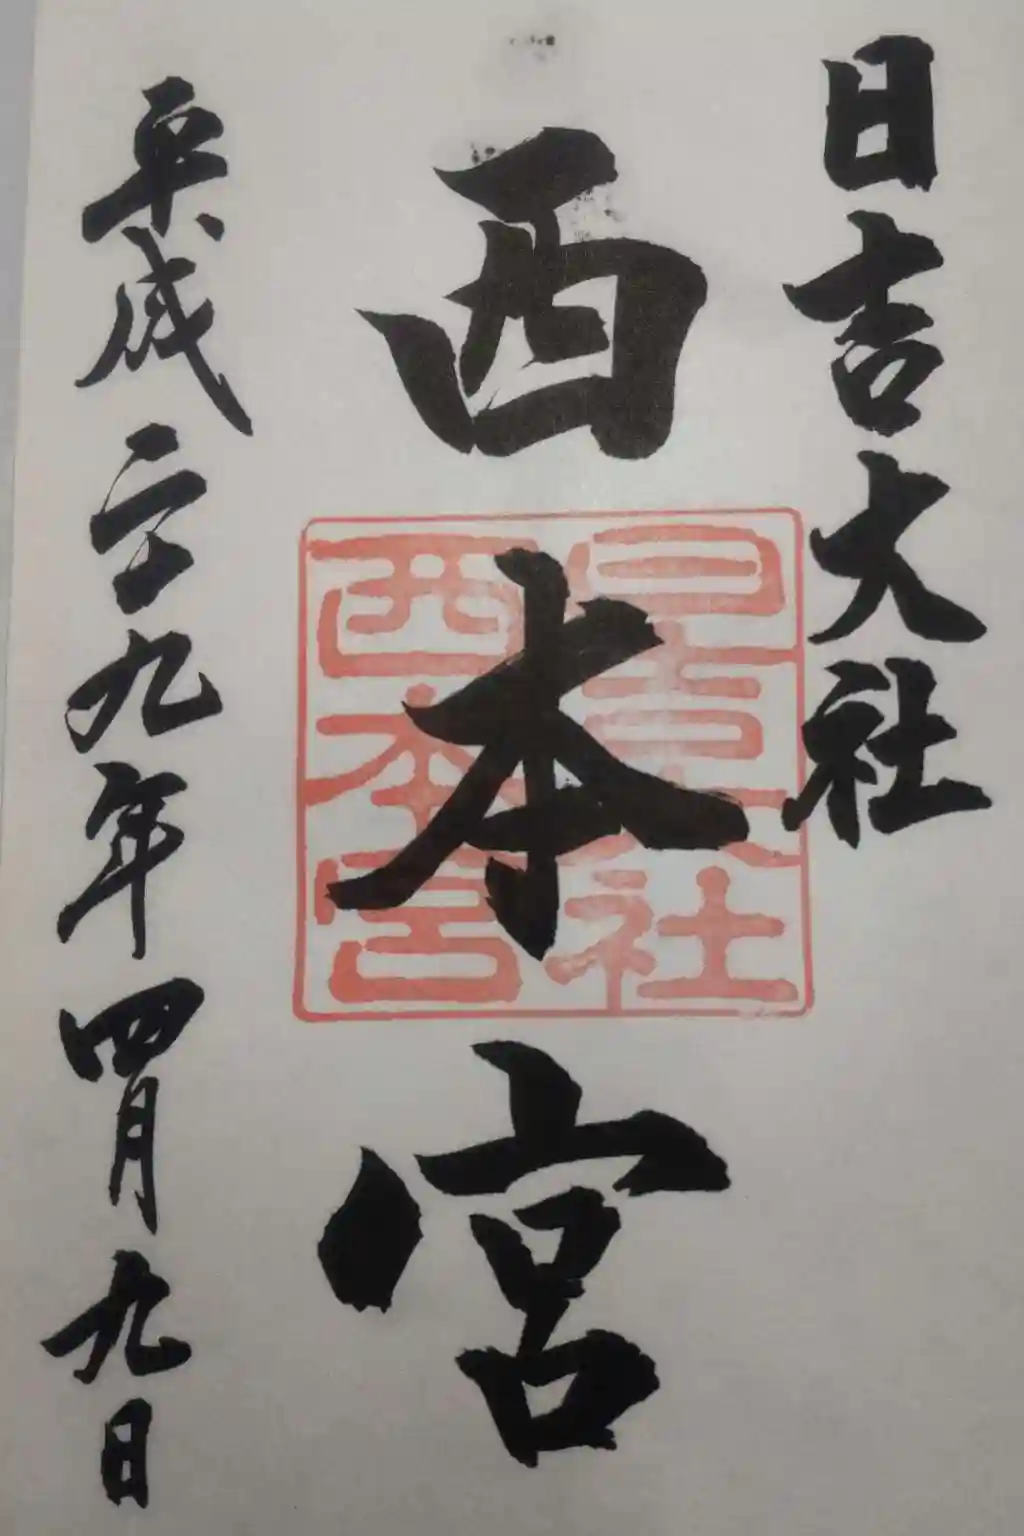 日吉大社
西本宮
日吉大社
西本宮
平成二十九年四月九日